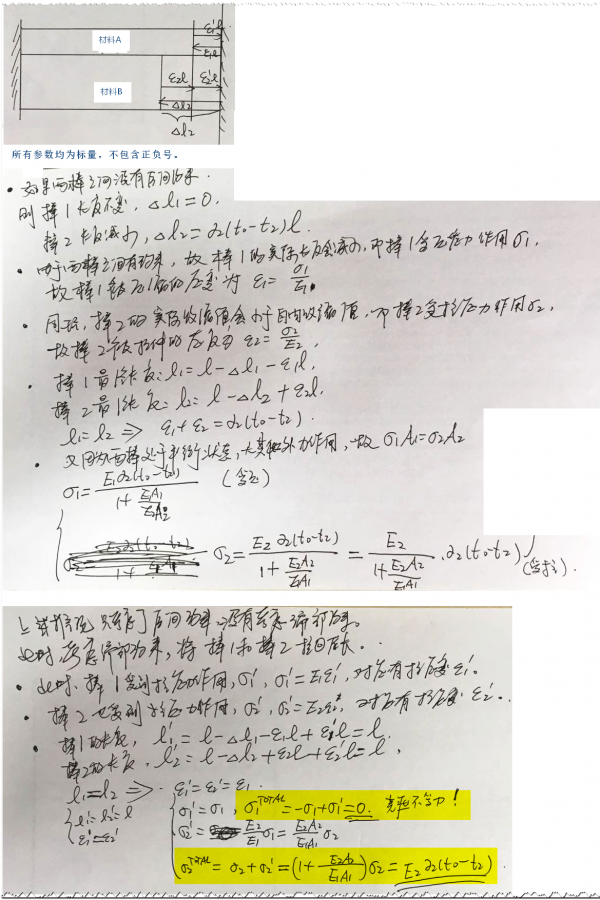 材料A
ε₁'l
ε₁l
材料B
ε₂l
ε₂'l
Δl₂
Δl₂
所有参数均为标量，不包含正负号。
· 如果两棒之间没有层间约束.
则 棒1长度不变，Δl₁=0.
棒2长度减小，Δl₂=∂₂(t₀-t₂)l.
· 由于两棒之间有约束，故棒1的实际长度会减小，即棒1受压应力作用σ₁，
故棒1被压缩的应变为 ε₁=σ₁/E₁.
· 同理，棒2的实际收缩值会小于自由收缩值，即棒2受拉应力作用σ₂，
故棒2被拉伸的应变为 ε₂=σ₂/E₂.
· 棒1最终长度：l₁=l-Δl₁-ε₁l,
棒2最终长度：l₂=l-Δl₂+ε₂l.
l₁=l₂ ⇒ ε₁+ε₂=∂₂(t₀-t₂).
· 又因为两棒处于平衡状态，无其他外力作用，故 σ₁A₁=σ₂A₂
σ₁=E₁∂₂(t₀-t₂)/(1+E₁A₁/E₂A₂) (受压)
σ₂=E₂∂₂(t₀-t₂)/(1+E₂A₂/E₁A₁)=E₂/(1+E₂A₂/E₁A₁)·∂₂(t₀-t₂) (受拉).
上述情况 只考虑了层间约束，没有考虑端部约束。
此时，考虑端部约束，将棒1和棒2拉回原长.
· 此时，棒1受到拉应力作用，σ₁'，σ₁'=E₁ε₁'，对应有拉应变ε₁'。
· 棒2也受到拉应力作用，σ₂'，σ₂'=E₂ε₂'，对应有拉应变ε₂'.
· 棒1的长度，l₁'=l-Δl₁-ε₁l+ε₁'l=l.
棒2的长度，l₂'=l-Δl₂+ε₂l+ε₂'l=l.
l₁=l₂ ⇒ ε₁'=ε₂'=ε₁.
l₁'=l₂'=l
ε₁'=ε₂'
σ₁'=σ₁, σ₁ᵀᴼᵀᴬᴸ=-σ₁+σ₁'=0. 竟然不受力！
σ₂'=E₂/E₁σ₁=E₂A₂/E₁A₁σ₂
σ₂ᵀᴼᵀᴬᴸ=σ₂+σ₂'=(1+E₂A₂/E₁A₁)σ₂=E₂∂₂(t₀-t₂).